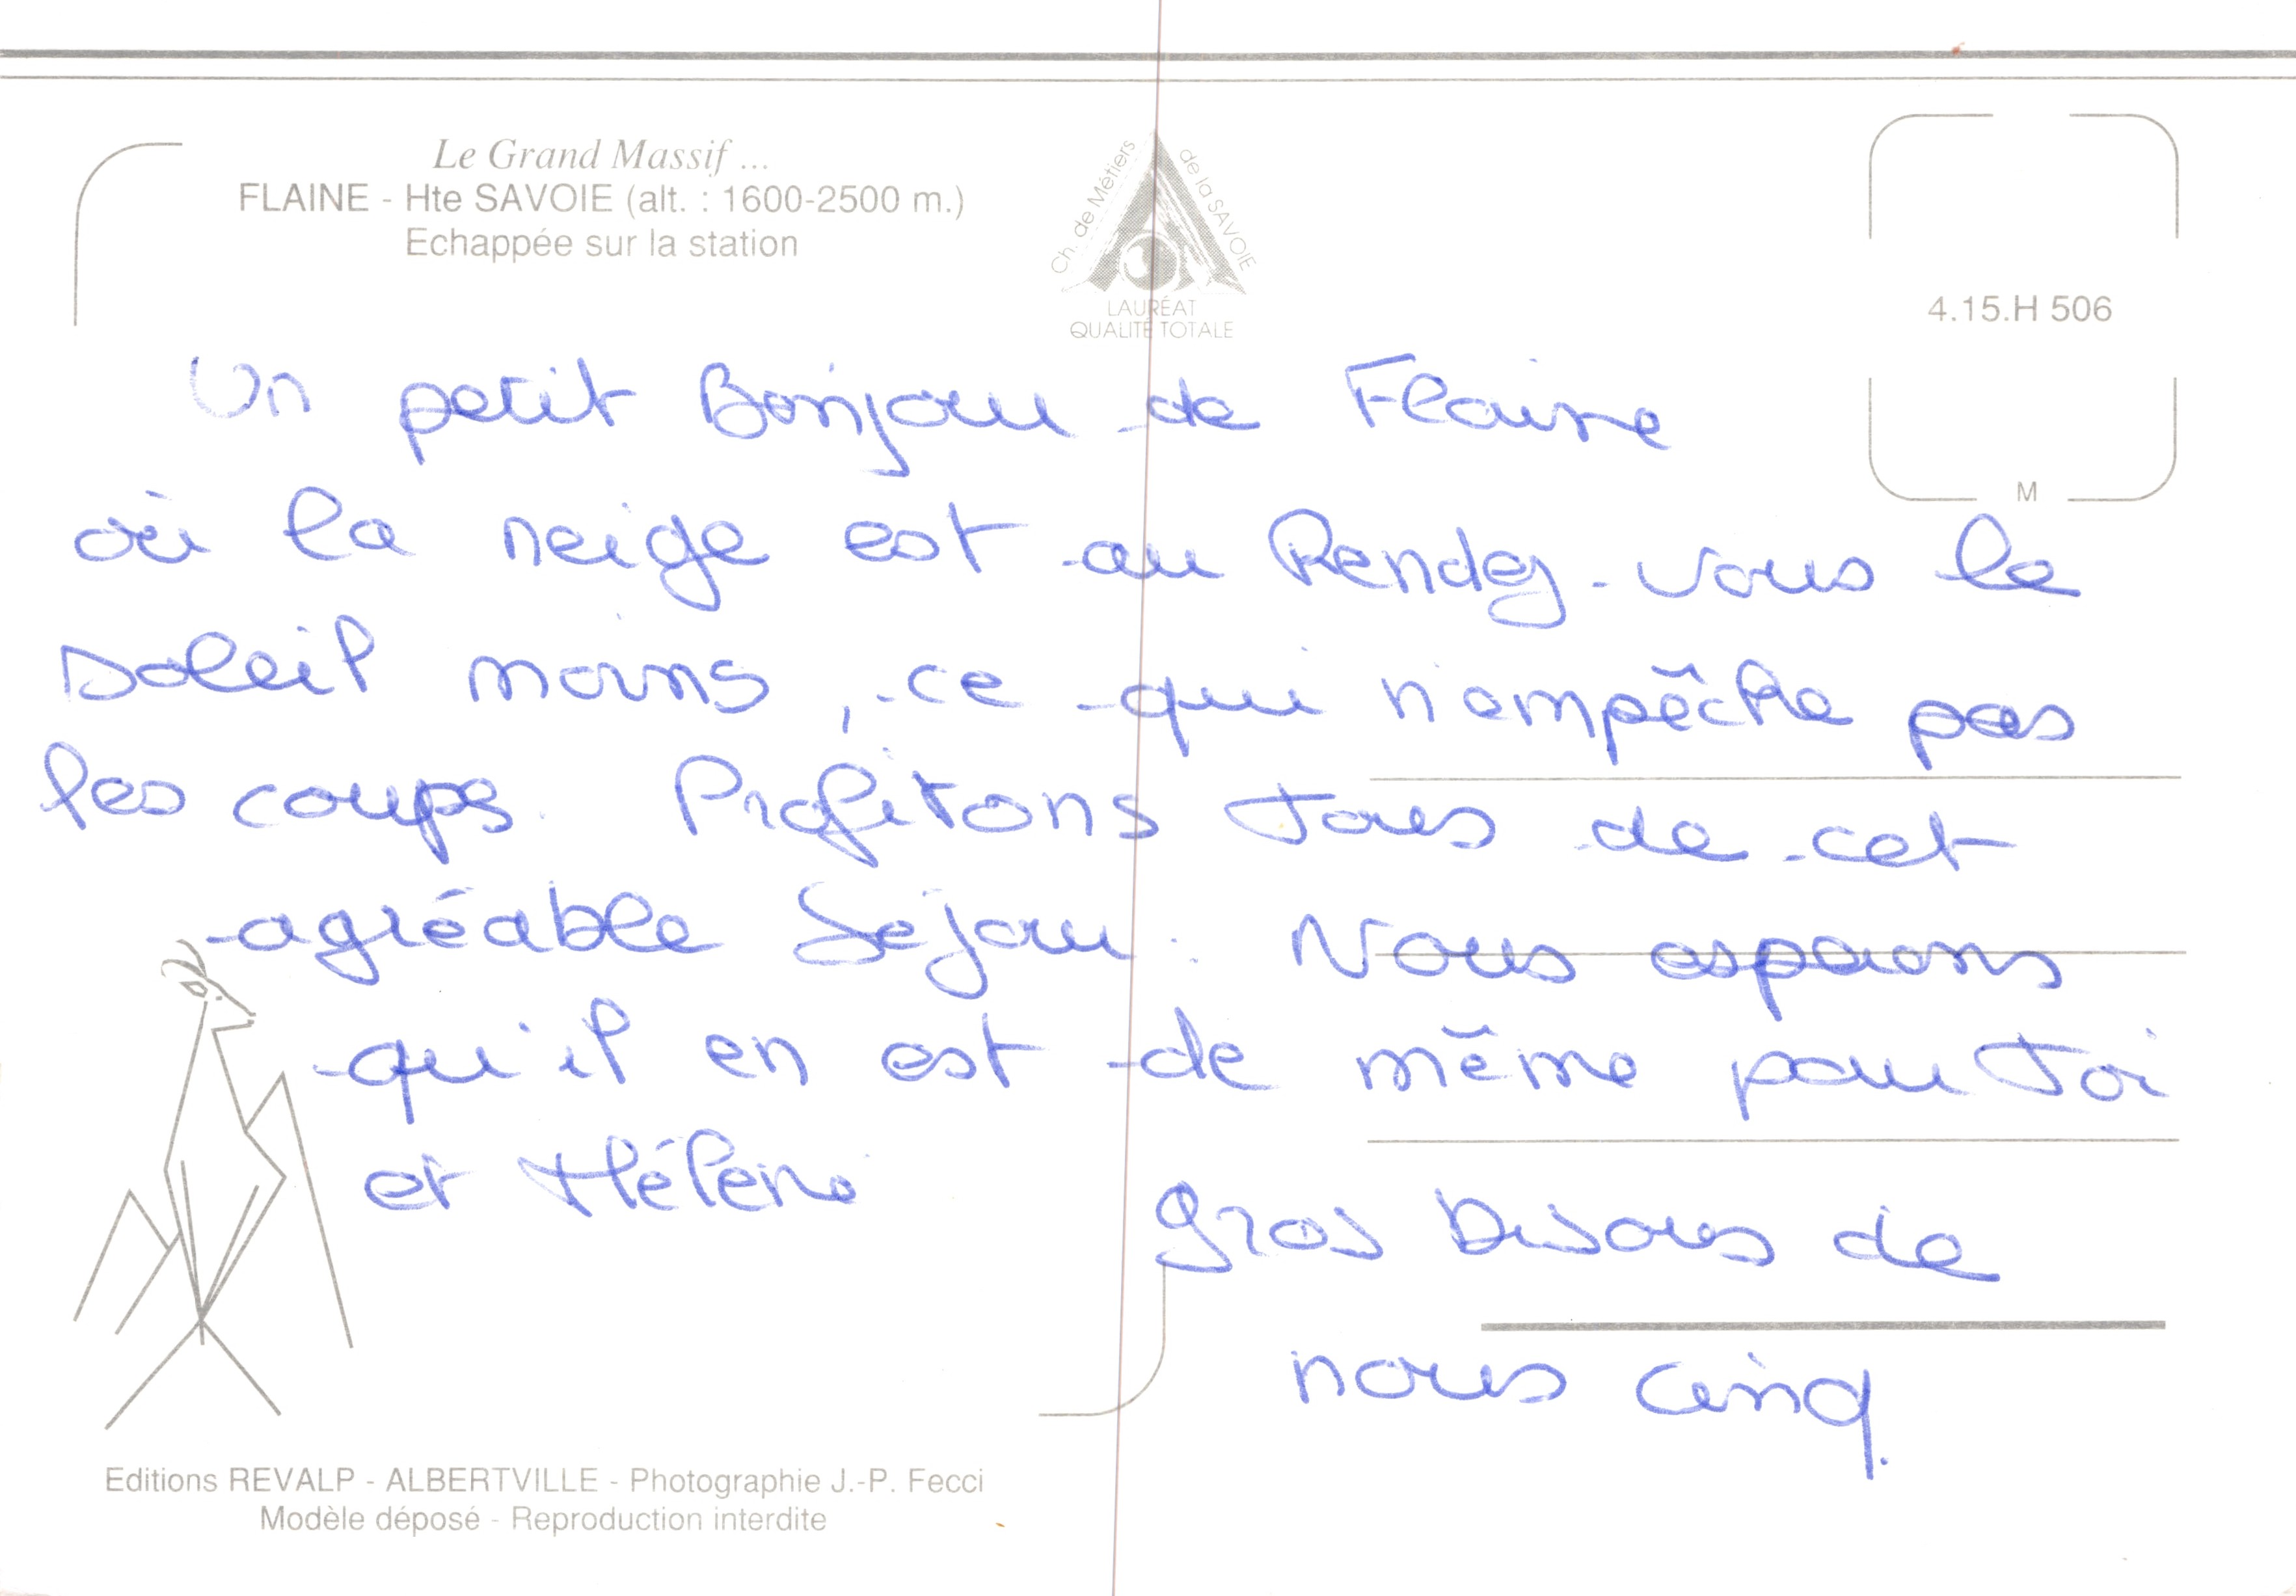 Le Grand Massif ...
FLAINE - Hte SAVOIE (alt. : 1600-2500 m.)
Echappée sur la station
Ch. de Métiers de la SAVOIE
LAURÉAT
QUALITÉ TOTALE
4.15.H 506
M
Un petit Bonjour de Flaine
où la neige est au Rendez-vous le
soleil moins, ce qui n'empêche pas
les coups. Profitons tous de cet
agréable Séjour. Nous espérons
qu'il en est de même pour toi
et Hélène
gros bisous de
nous cinq.
Editions REVALP - ALBERTVILLE - Photographie J.-P. Fecci
Modèle déposé - Reproduction interdite